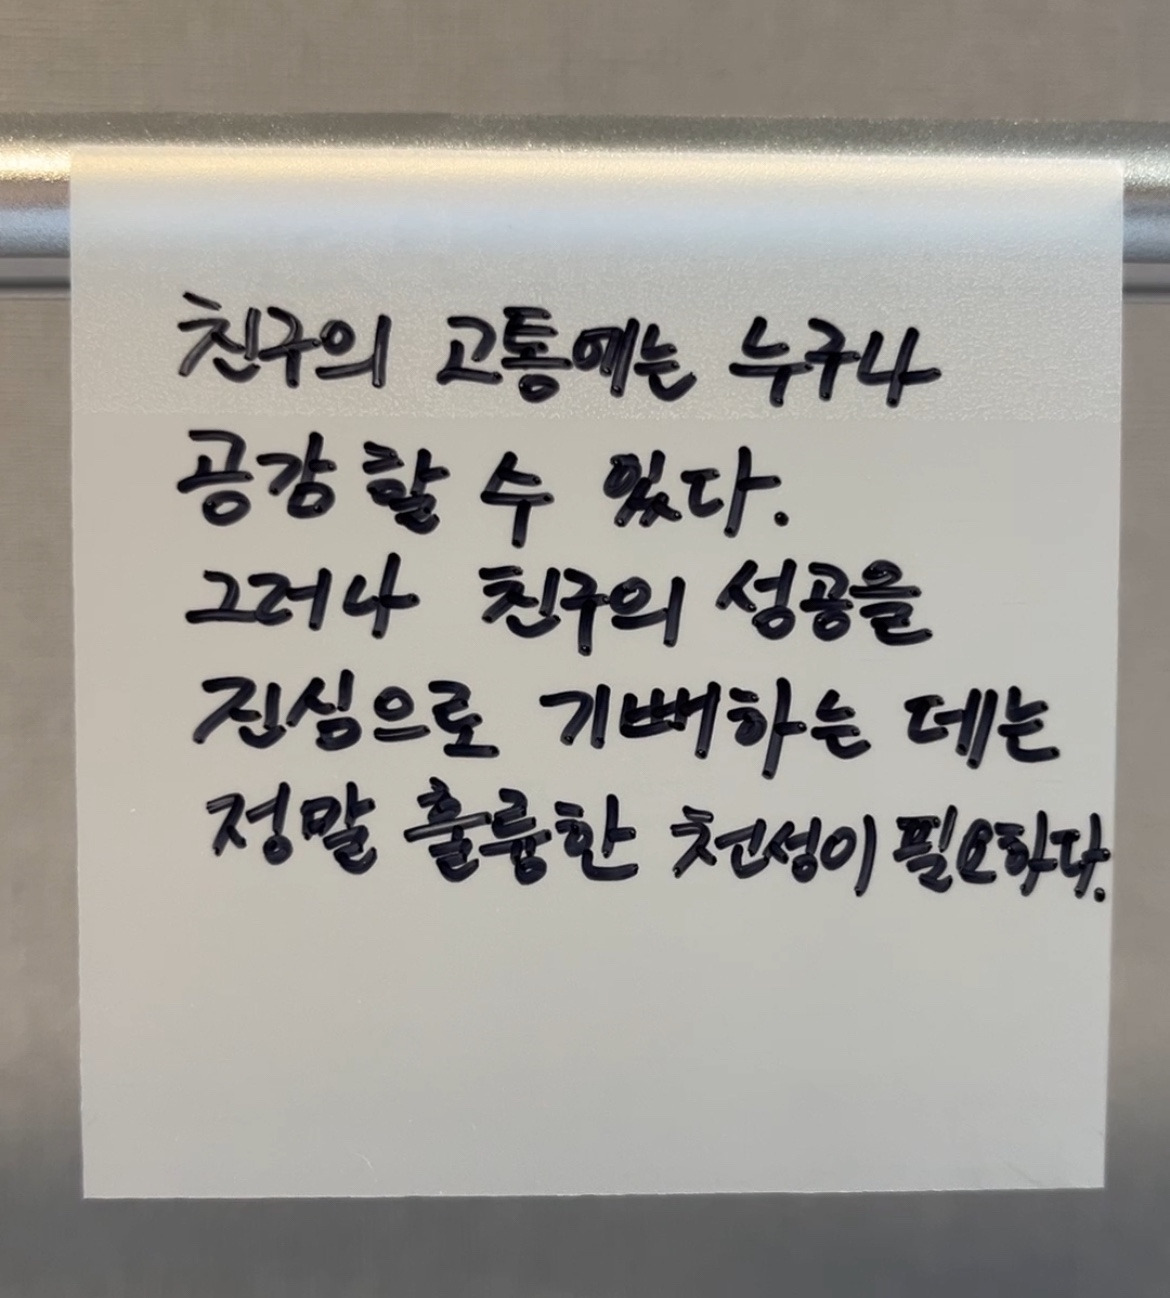 친구의 고통에는 누구나
공감할 수 있다.
그러나 친구의 성공을
진심으로 기뻐하는 데는
정말 훌륭한 천성이 필요하다.